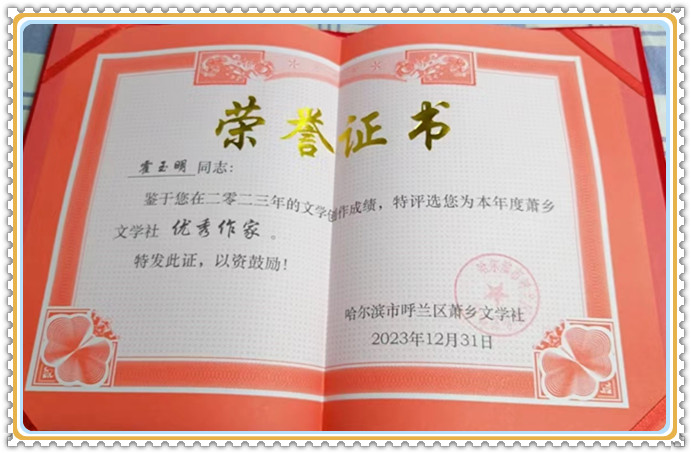 荣誉证书
霍玉明 同志:
鉴于您在二零二三年的文学创作成绩，特评选您为本年度萧乡
文学社 优秀作家 。
特发此证，以资鼓励!
哈尔滨市呼兰区萧乡文学社
2023年12月31日